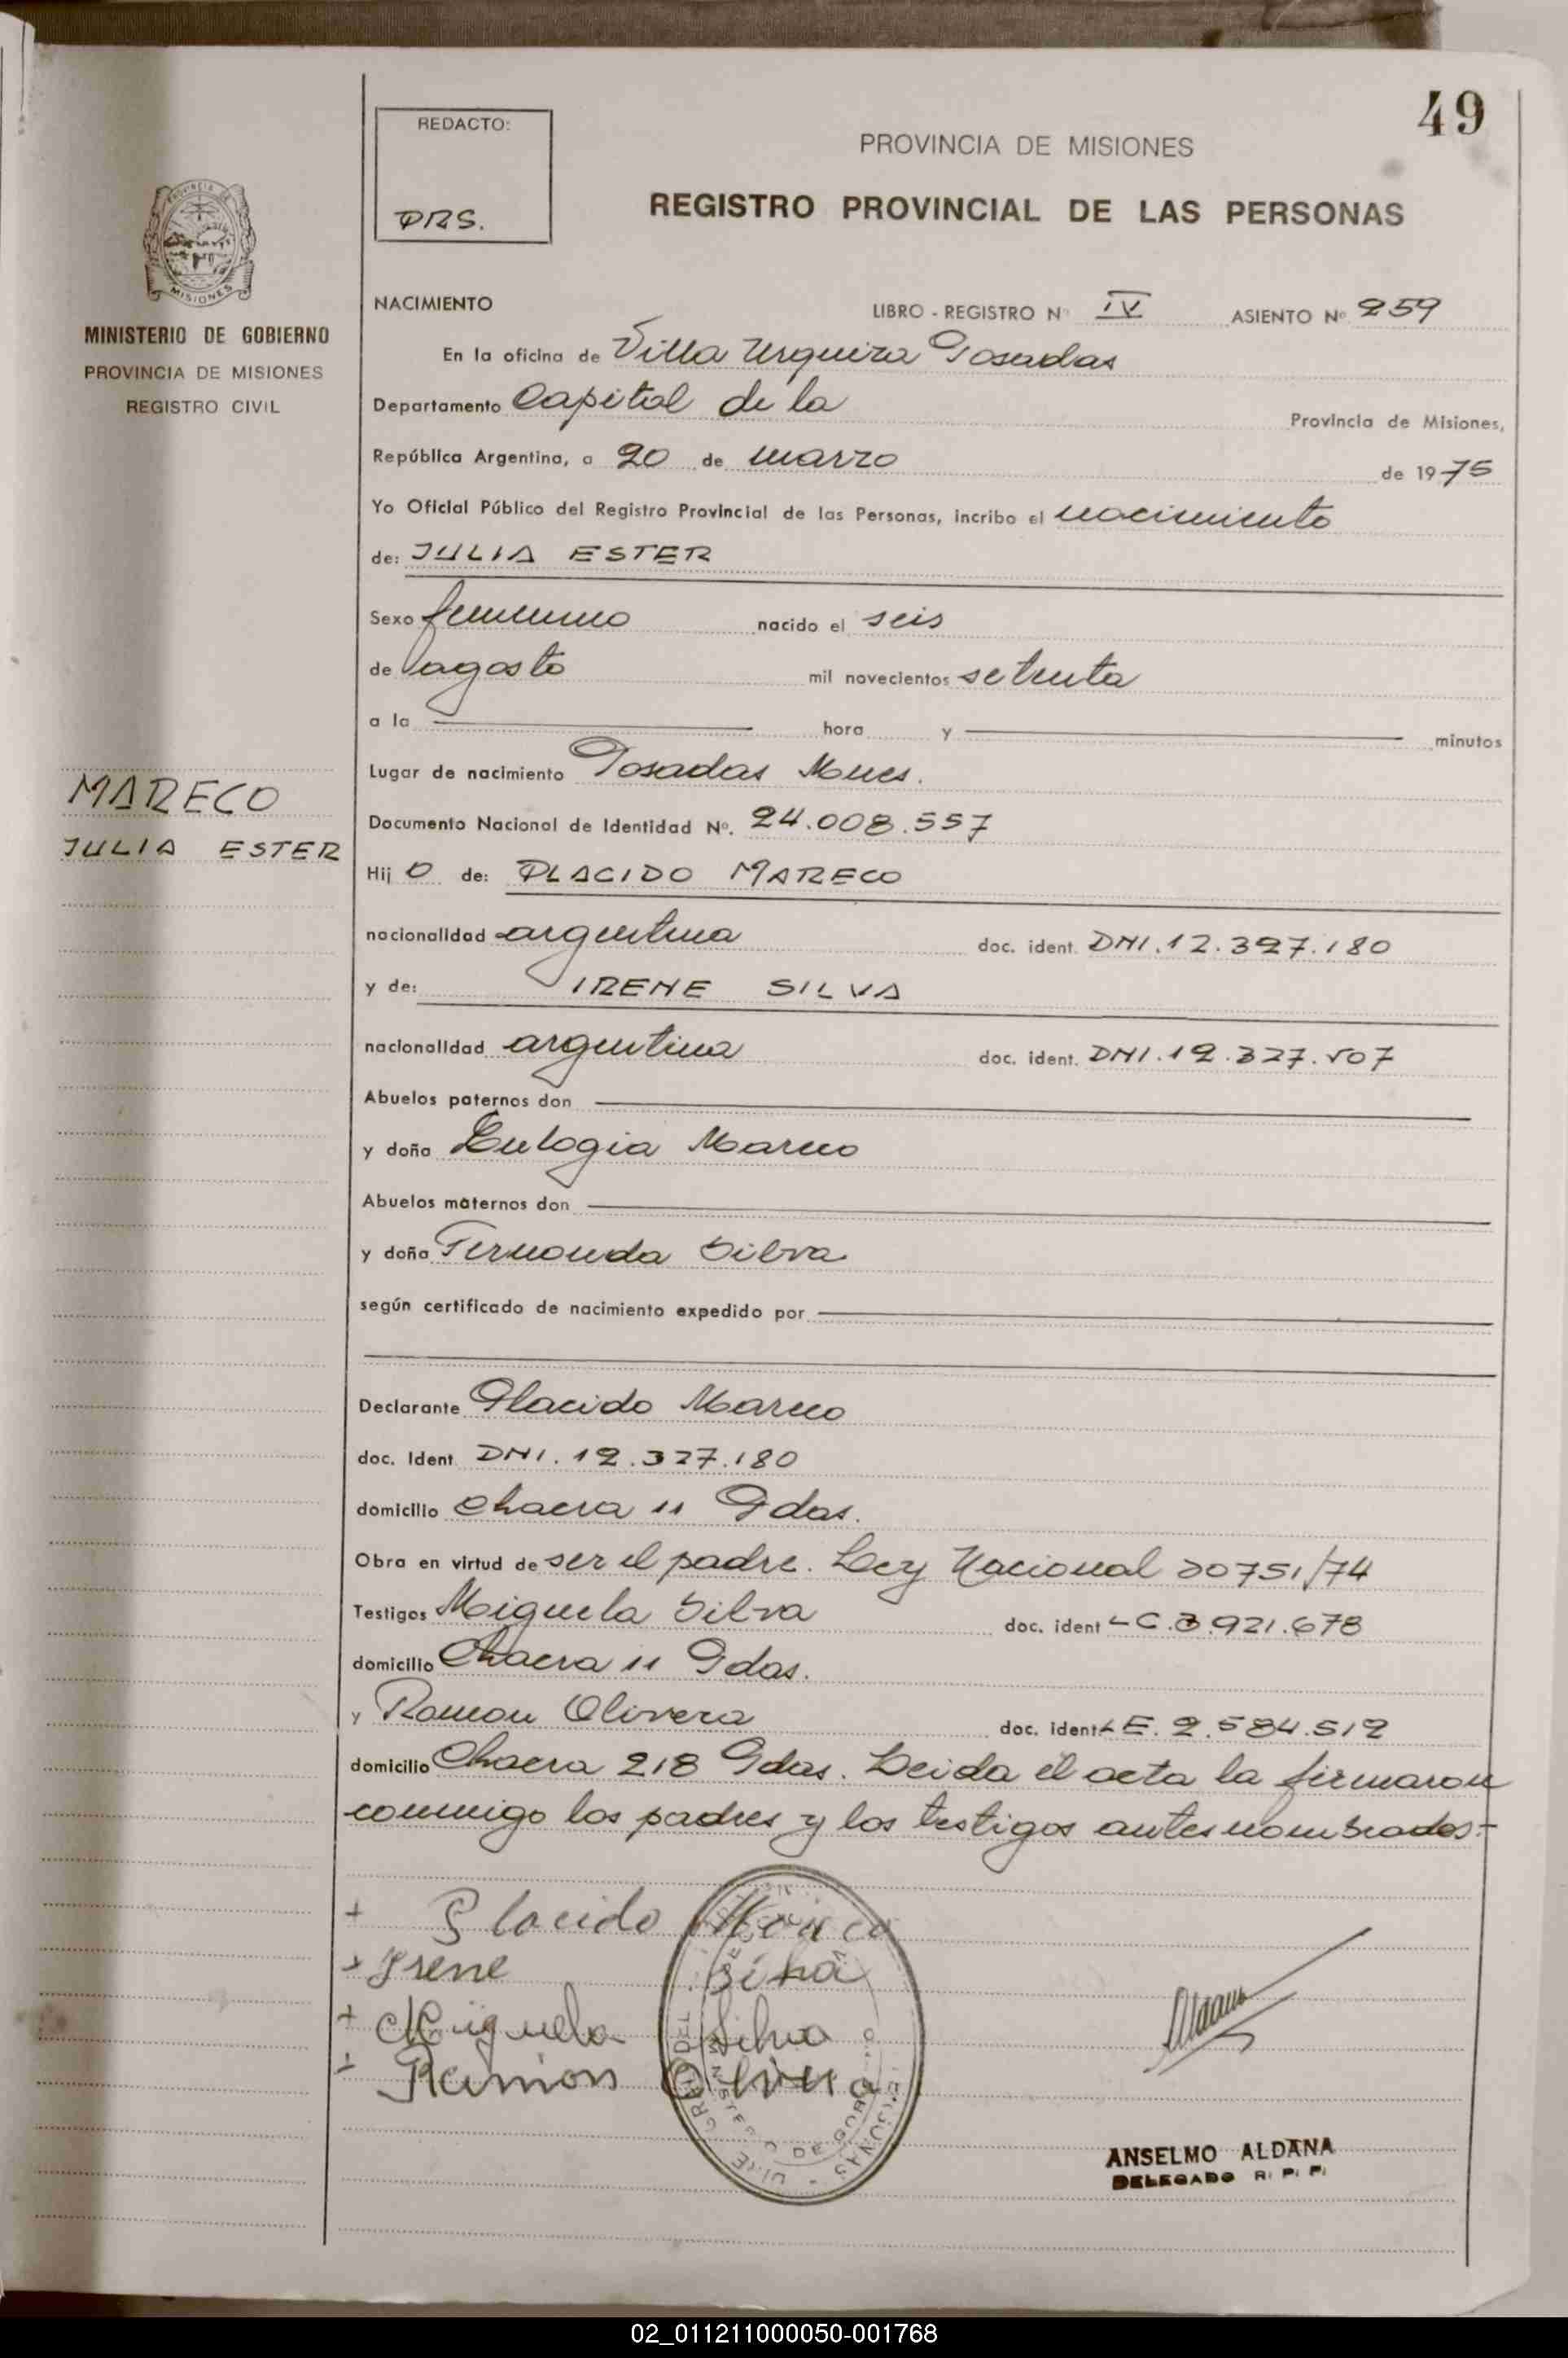 49
REDACTO:
PRS.
PROVINCIA DE MISIONES
REGISTRO PROVINCIAL DE LAS PERSONAS
MISIONES
MINISTERIO DE GOBIERNO
PROVINCIA DE MISIONES
REGISTRO CIVIL
NACIMIENTO LIBRO - REGISTRO Nº IV ASIENTO Nº 259
En la oficina de Villa Urquiza Posadas
Departamento Capital de la Provincia de Misiones,
República Argentina, a 20 de marzo de 1975
Yo Oficial Público del Registro Provincial de las Personas, incribo el nacimiento
de: JULIA ESTER
Sexo femenino nacido el seis
de agosto mil novecientos setenta
a la hora y minutos
Lugar de nacimiento Posadas Mnes.
MARECO
JULIA ESTER
Documento Nacional de Identidad Nº. 24.008.557
Hij o de: PLACIDO MARECO
nacionalidad argentina doc. ident. DNI.12.327.180
y de: IRENE SILVA
nacionalidad argentina doc. ident. DNI.12.327.507
Abuelos paternos don
y doña Eulogia Mareco
Abuelos maternos don
y doña Fernanda Silva
según certificado de nacimiento expedido por
Declarante Placido Mareco
doc. Ident. DNI. 12.327.180
domicilio chacra 11 Pdas.
Obra en virtud de ser el padre. Ley Nacional 20751/74
Testigos Miguela Silva doc. ident LC.3.921.678
domicilio Chacra 11 Pdas.
y Ramon Olivera doc. ident LE. 2.584.512
domicilio Chacra 218 Pdas. Leida el acta la firmaron
conmigo los padres y los testigos antes nombrados.-
+ Placido Mareco
+ Irene Silva
+ Miguela Silva
+ Ramon Olivera
Aldana
ANSELMO ALDANA
DELEGADO R. P. P.
02_011211000050-001768